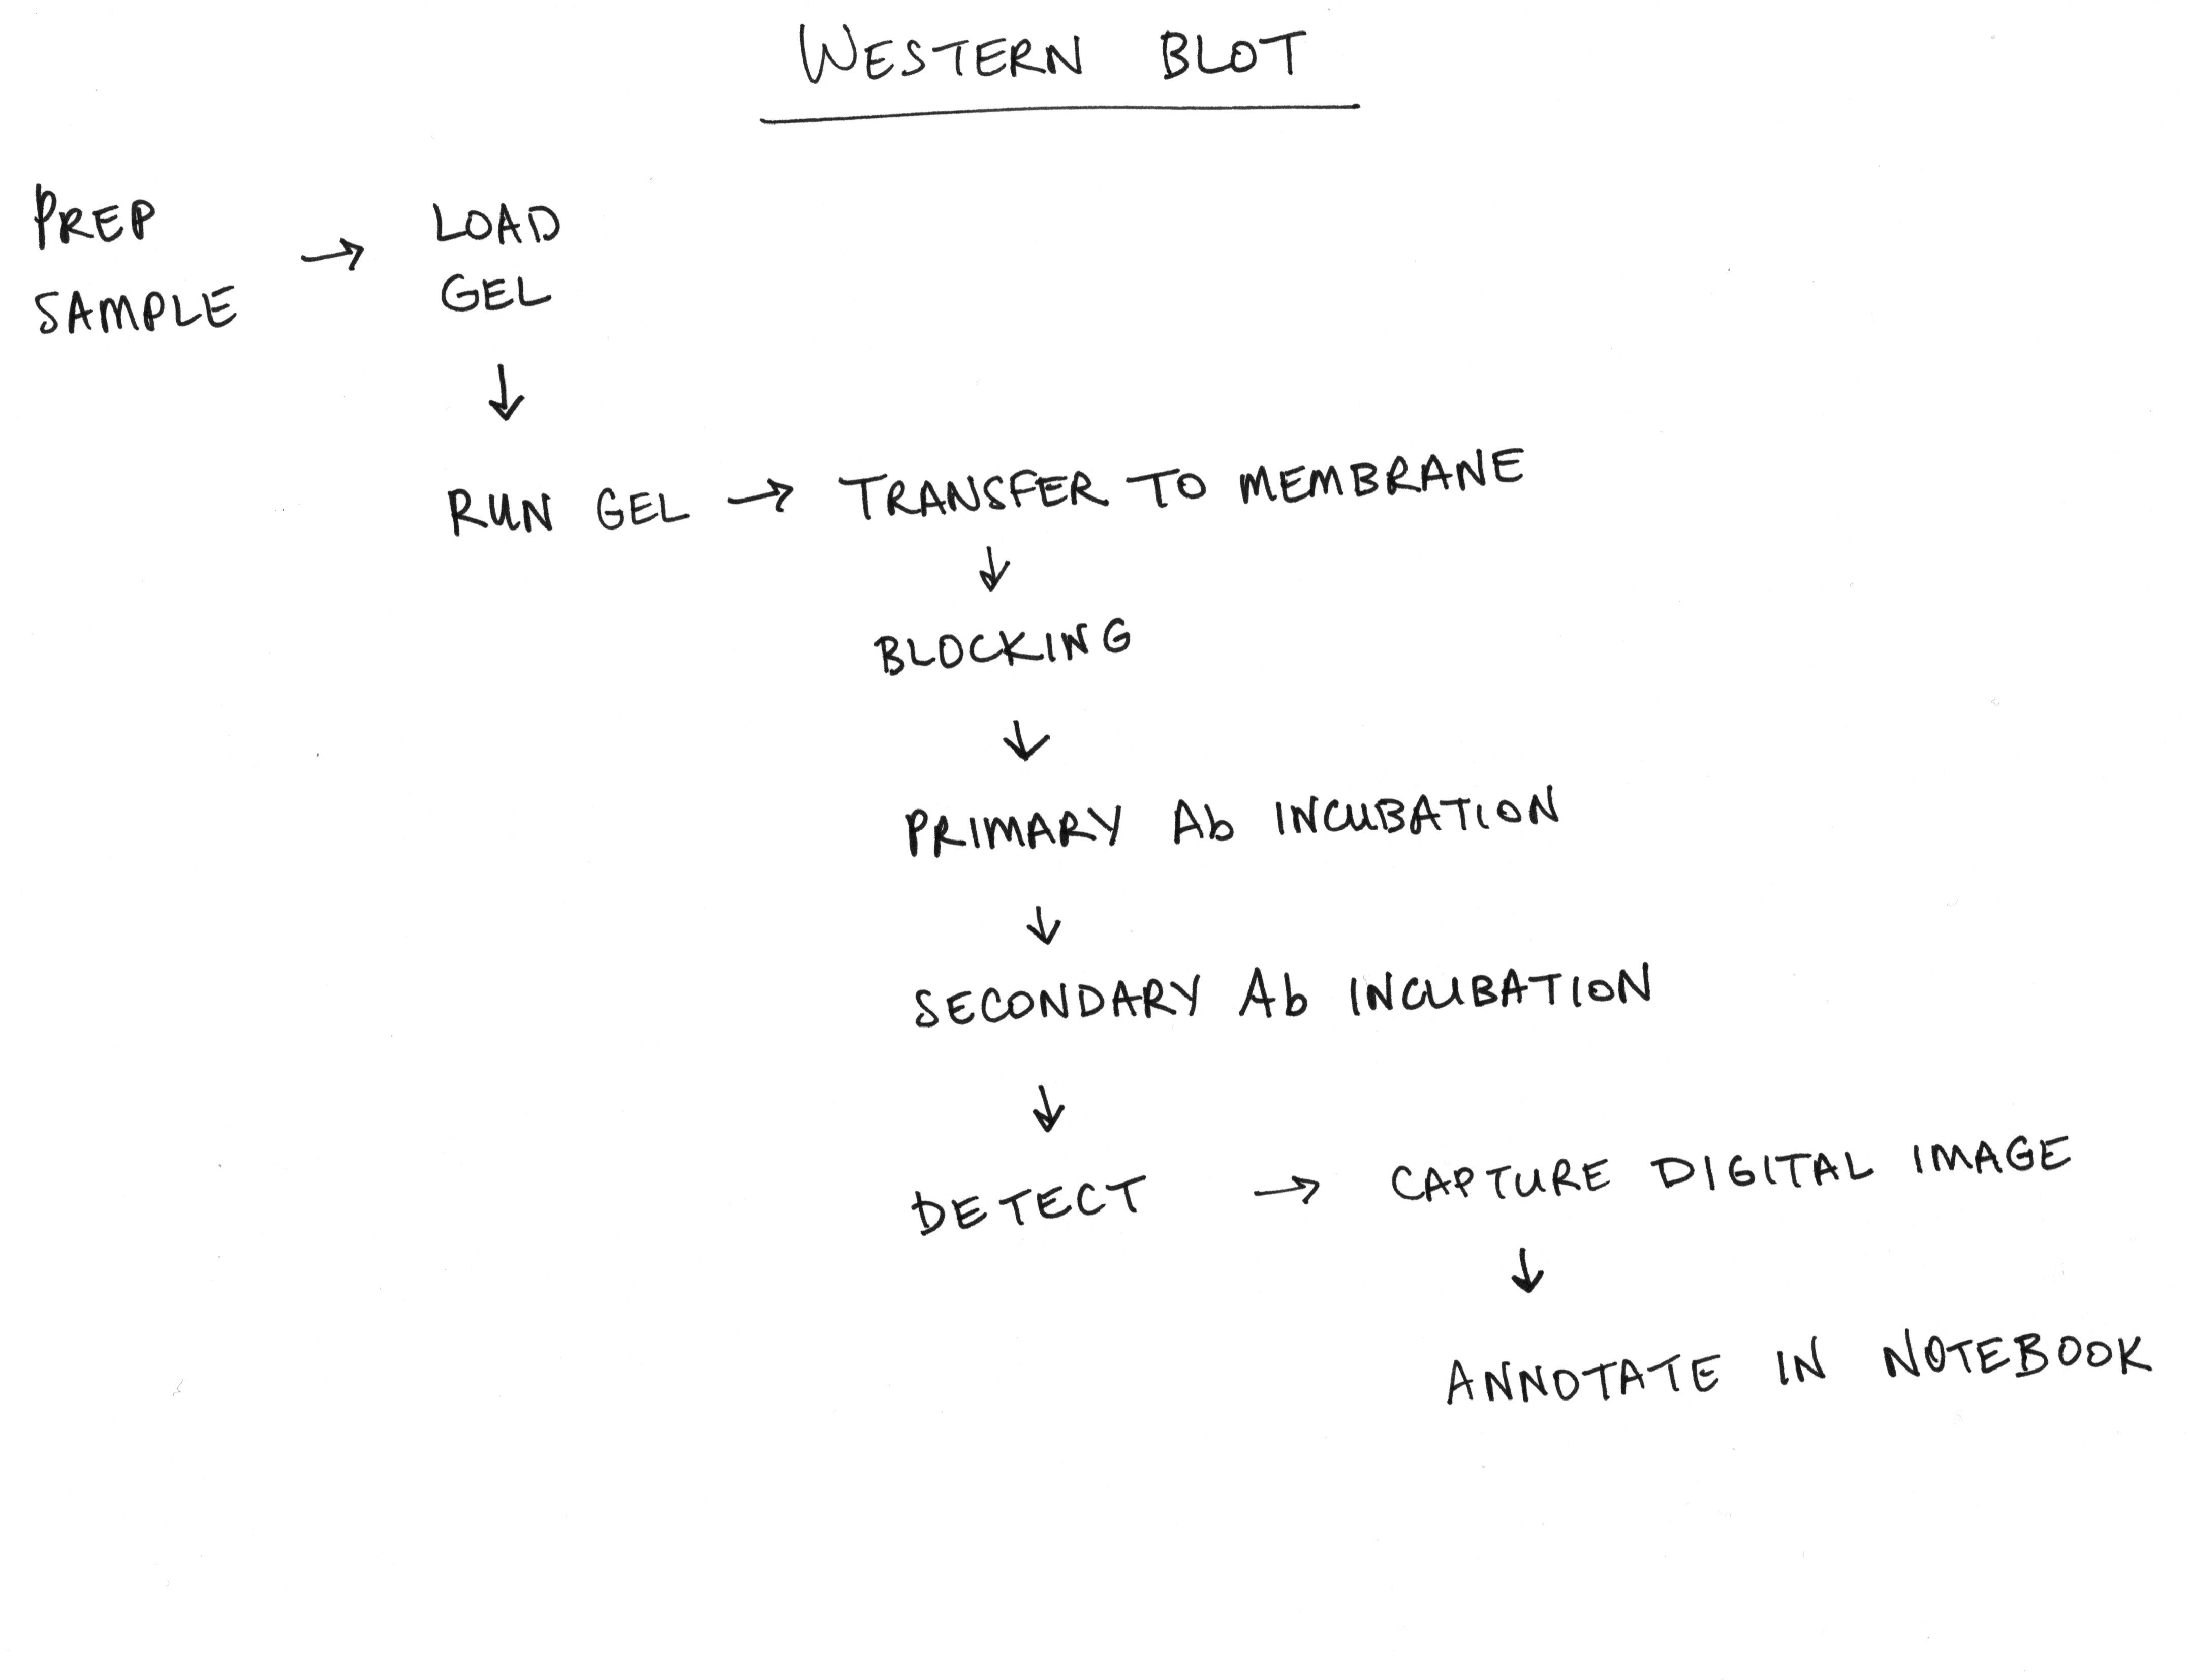 WESTERN BLOT
PREP
SAMPLE
→
LOAD
GEL
↓
RUN GEL → TRANSFER TO MEMBRANE
↓
BLOCKING
↓
PRIMARY Ab INCUBATION
↓
SECONDARY Ab INCUBATION
↓
DETECT → CAPTURE DIGITAL IMAGE
↓
ANNOTATE IN NOTEBOOK